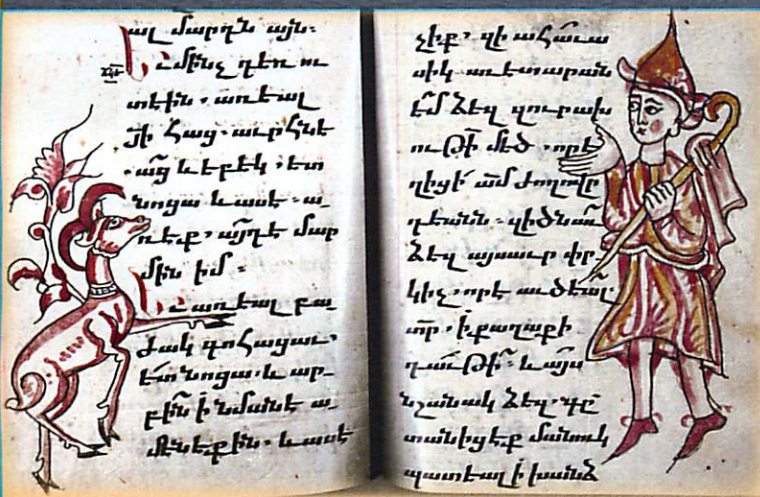 ալ մարդն այն։
Եւ մինչ դեռ ու
տէին. առեալ
յի հաց. աւրհնե
աց և եբեկ. ետ
նոցա և ասէ. ա
ռէք. այդէ մար
մին իմ։
Եւ առեալ բա
ժակ գոհացաւ.
ետ նոցա. և ար
բին ի նմանէ ա
մենեքին. և ասէ
չիք. զի ահաւա
սիկ աւետարան
եմ ձեզ զուրախ
ութի մեծ. որ է
ղիցի ամ ժողովր
դեանն. զի ծնաւ
ձեզ այսաւր փր
կիչ. որ է աւծեալ
տր. ի քաղաքի
դաւթի. և այս
նշանակ ձեզ. գը
տանիցէք մանուկ
պատեալ ի խանձ